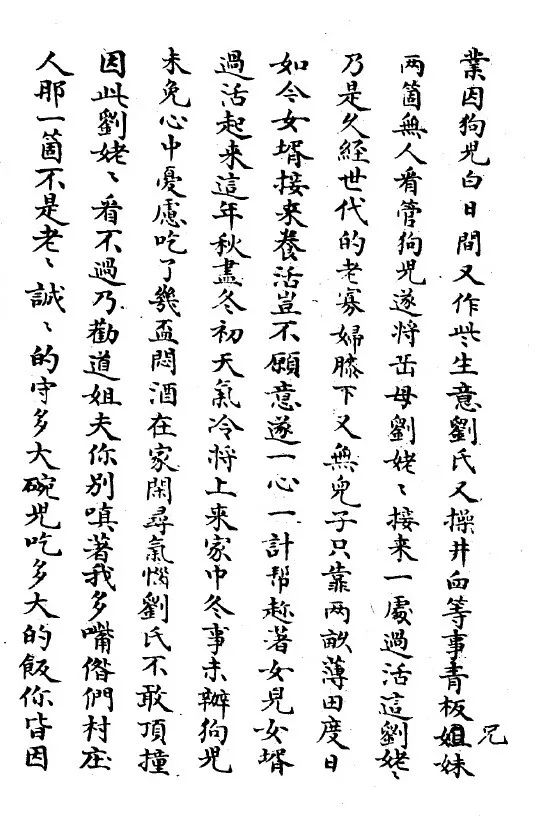 業因狗兒白日間又作些生意劉氏又操井臼等事青板姐妹
兄
両箇無人看管狗兒遂將岳母劉姥〻接來一處過活這劉姥〻
乃是久經世代的老寡婦膝下又無兒子只靠両畝薄田度日
如今女壻接來養活豈不願意遂一心一計帮趂著女兒女壻
過活起來這年秋盡冬初天氣冷將上來家中冬事未辦狗兒
未免心中憂慮吃了幾盃悶酒在家閑尋氣惱劉氏不敢頂撞
因此劉姥〻看不過乃勸道姐夫你別嗔著我多嘴偺們村庄
人那一箇不是老〻誠〻的守多大碗兒吃多大的飯你皆因